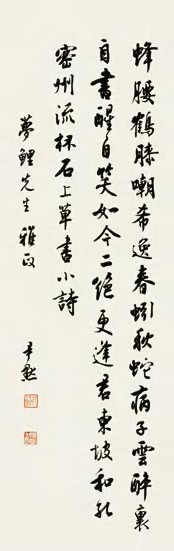 蜂腰鶴膝嘲希逸春蚓秋蛇病子雲醉裏
自書醒自笑如今二絕更逢君東坡和孔
密州流杯石上草書小詩
夢鯉先生雅政
尹默